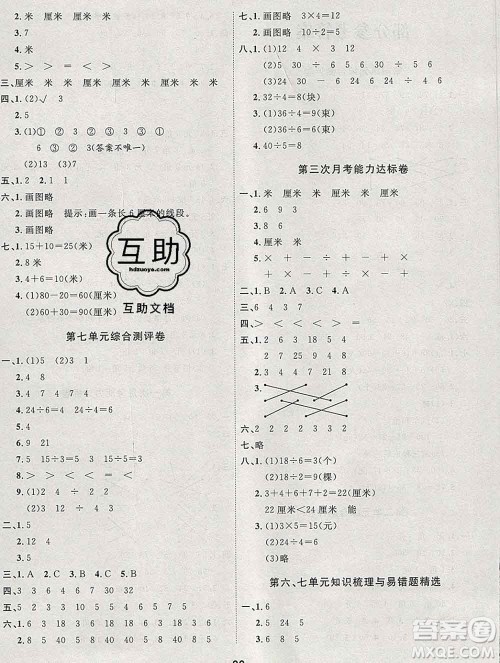 2. 米 米 厘米 厘米
3. 7
4. 米
5. > < < >
三、厘米 米 厘米 米 厘米 米 厘米
四、1. (2)√ 3
2. 5
3. (1)① ② ③ ①
(2)3 (答案不唯一)
(3)13 7
五、1. 画图略
六、1. 画图略 提示:画一条长6厘米的线段。
2. 画图略
七、1. 15+10=25(米)
2. 8米
3. 4+6=10(米)
4. (1)80-20=60(厘米)
(2)60+30=90(厘米)
第七单元综合测评卷
一、1. (1)5 (2)3 1
2. 4 8
3. 4 7 4 7
4. 24÷6=4 24÷4=6
6. 9 21
7. 5 15÷3=5 15÷5=3
8. > > < < =
9. (1)÷ ÷ ÷ (2)× - ÷
二、1. 5
2. (1)12 3 4 (2)5 3
三、C B B C B
四、√ × × × ×
五、6 2 6 3 18 5 2
六、1 27 16 9 8 40 5 8 5
七、1. 画图略 3×4=12
2. 画图略 10÷2=5
八、1. (1)12 4 3
(2)12 3 4
2. 32÷4=8(块)
3. (1)24÷6=4(束)
(2)24÷3=8(束)
第三次月考能力达标卷
一、1. 米 厘米 厘米 米
2. 8 6 9 3
4. 2 6 2
5. × ÷ + ÷ - ÷
二、C A B C B
三、6 4 37 7
四、> < > < = =
五、1. 2 18 3 5 4 7 6 9
2. 6 3 18 9 5 6 4
3.
六、2 2 3 3 3 2
七、略
八、1. (1)18÷6=3(个)
(2)18÷9=2(棵)
2. 3+4+6+7+2=22(厘米)
22厘米<24厘米 能
3. (1)3×5=15
(2)24÷3=8
(3)略
第六、七单元知识梳理与易错题精选
一、1. 6
2. 8 5 3 6 8 9
互助
hdzuoye.com
互助文档
作业帮
MXQE.COM